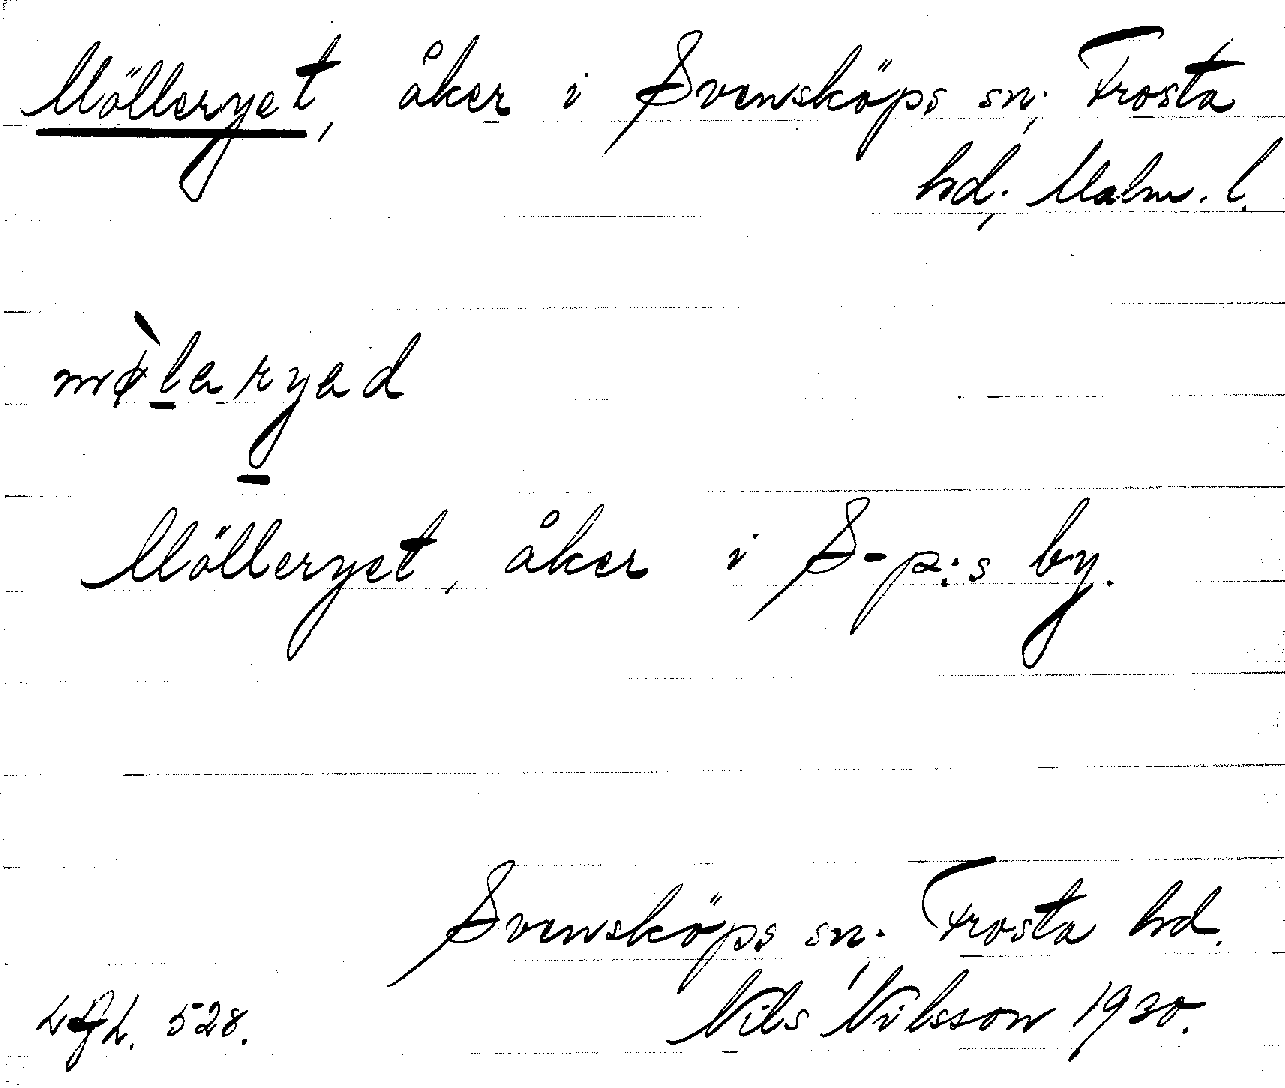 Mölleryet, åker i Svensköps sn; Frosta
hd; Malm. l.
mø̀laryad
Mölleryet, åker i S-p:s by.
Svensköps sn. Frosta hd.
Nils Nilsson 1920.
LAL. 528.